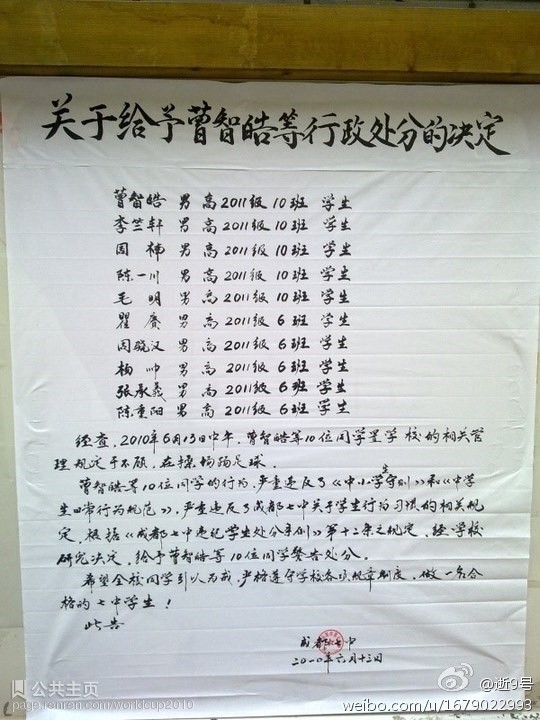 关于给予曹智皓等行政处分的决定
曹智皓 男 高2011级 10班 学生
李竺轩 男 高2011级 10班 学生
周楠 男 高2011级 10班 学生
陈一川 男 高2011级 10班 学生
毛明 男 高2011级 10班 学生
瞿赓 男 高2011级 6班 学生
周晓汉 男 高2011级 6班 学生
杨帅 男 高2011级 6班 学生
张承羲 男 高2011级 6班 学生
陈重阳 男 高2011级 6班 学生
经查,2010年6月13日中午,曹智皓等10位同学置学校的相关管
理规定于不顾,在操场踢足球。
曹智皓等10位同学的行为,严重违反了《中小学生守则》和《中学
生日常行为规范》,严重违反了成都七中关于学生行为习惯的相关规
定,根据《成都七中违纪学生处分条例》第十二条之规定,经学校
研究决定,给予曹智皓等10位同学警告处分。
希望全校同学引以为戒,严格遵守学校各项规章制度,做一名合
格的七中学生!
此告
成都七中
二〇一〇年六月十三日
公共主页
page.renren.com/worldcup2010
@逝9号
weibo.com/u/1679022993